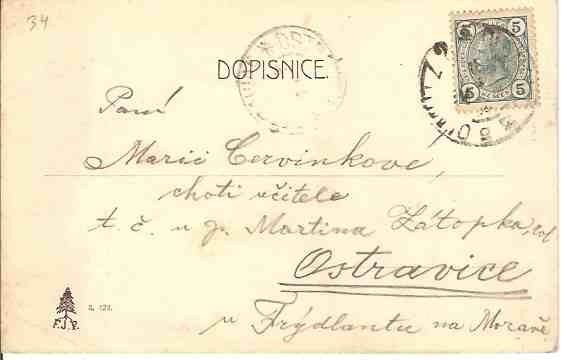 34
DOPISNICE.
5 5
5 5
Paní
Marii Červinkové,
choti učitele
t. č. u p. Martina Zátopka, rol
Ostravice
u Frýdlantu na Moravě
F. J. P.